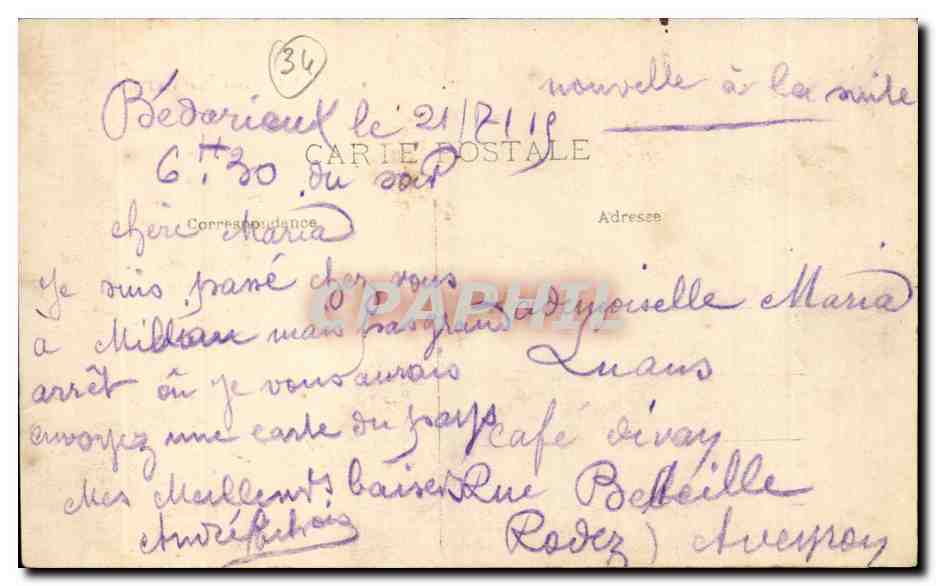 34
nouvelle à la suite
Bédarieux le 21/7/19
CARTE POSTALE
6H.30 du soir
Correspondance
Adresse
chère Maria
Je suis passé chez vous
a Millau mais pas grand
arrêt où je vous aurais
envoyez une carte du pays
Mes Meilleurs baisers
André
CPAPHIL
Mademoiselle Maria
café divay
Rue Beteille
Rodez) Aveyron